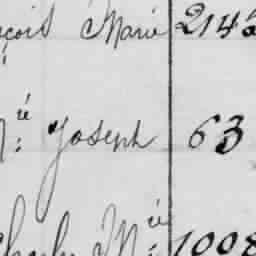 çois Marie 214
M.ie Joseph 63
Charles M.ie 1008